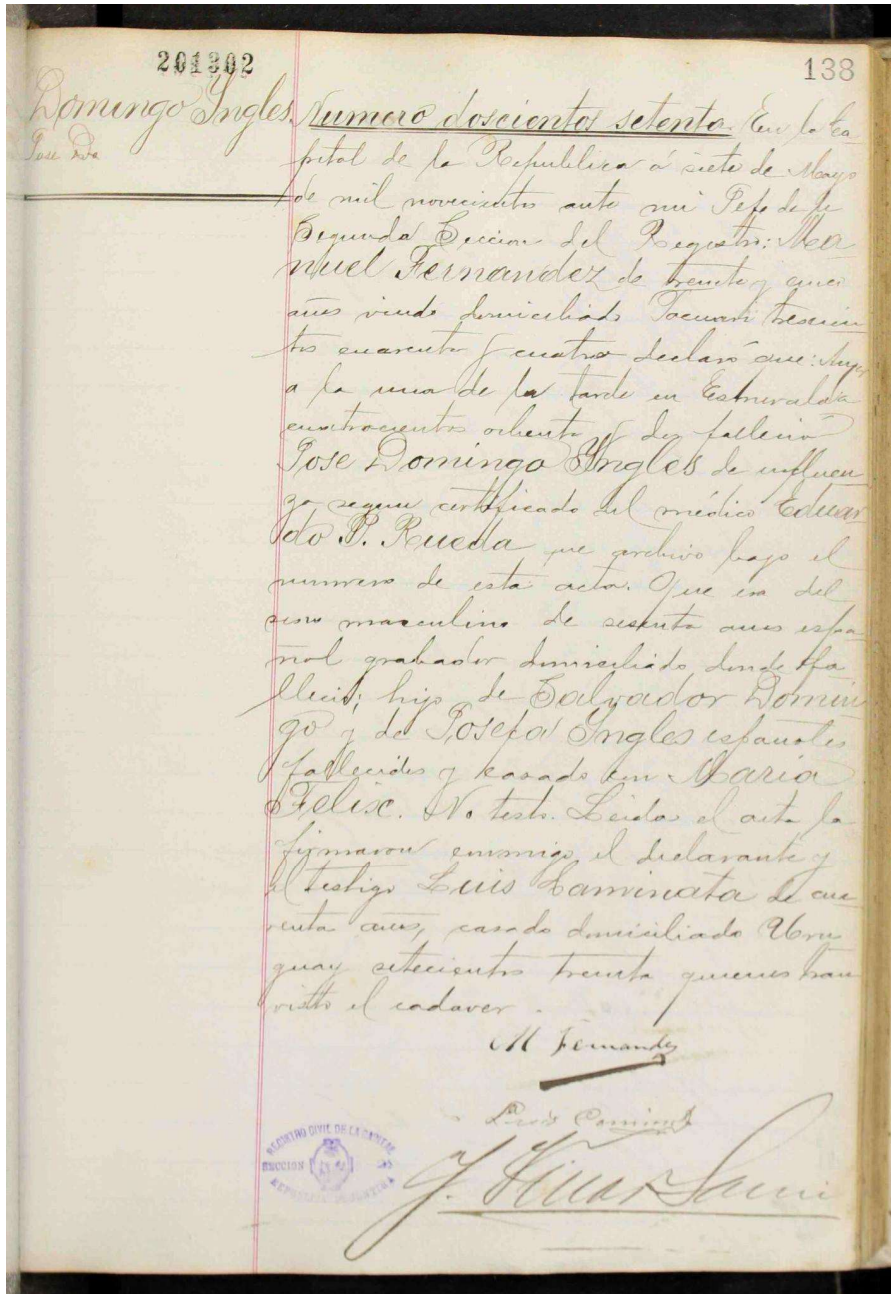 201302
138
Domingo Yngles
Jose
Numero doscientos setenta En la Ca
pital de la Republica á siete de Mayo
de mil novecientos ante mi Jefe de la
Segunda Seccion del Registro: Ma
nuel Fernandez de treinta y cinco
años viudo domiciliado Tacuari trescien
tos cuarenta y cuatro declaró que: Ayer
a la una de la tarde en Esmeralda
cuatrocientos ochenta y dos falleció
Jose Domingo Yngles de influen
za segun certificado del médico Eduar
do P. Rueda que archivo bajo el
numero de esta acta. Que era del
sexo masculino de sesenta años espa
ñol grabador domiciliado donde fa
lleció; hijo de Salvador Domin
go y de Josefa Yngles españoles
fallecidos y casado con Maria
Felix. No testó. Leida el acta la
firmaron conmigo el declarante y
el testigo Luis Caminata de cua
renta años, casado domiciliado Uru
guay setecientos treinta quienes han
visto el cadaver.
M Fernandez
Luis
REGISTRO CIVIL DE LA CAPITAL
SECCION